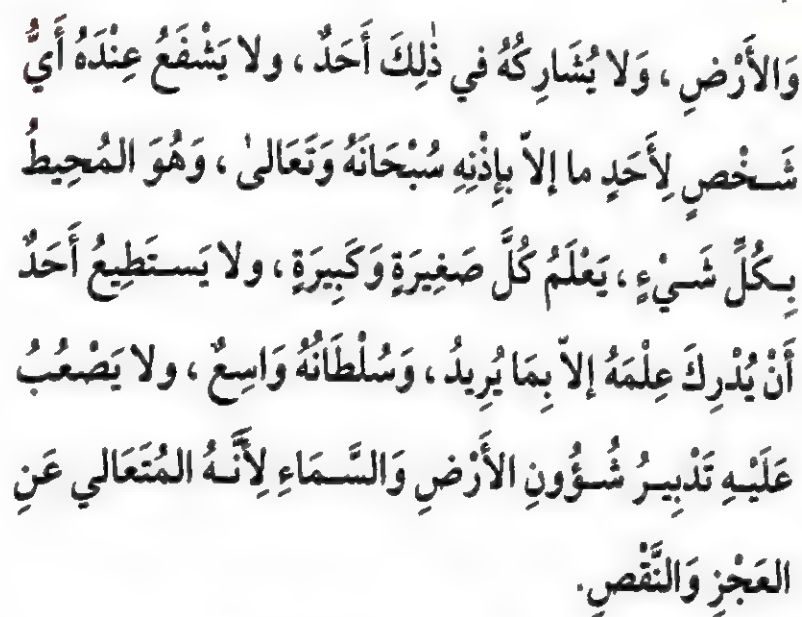 وَالأَرْضِ ، وَلا يُشَارِكُهُ في ذٰلِكَ أَحَدٌ ، ولا يَشْفَعُ عِنْدَهُ أَيُّ
شَخْصٍ لِأَحَدٍ ما إلاّ بِإِذْنِهِ سُبْحَانَهُ وَتَعَالىٰ ، وَهُوَ المُحِيطُ
بِكُلِّ شَيْءٍ ، يَعْلَمُ كُلَّ صَغِيرَةٍ وَكَبِيرَةٍ ، ولا يَستَطِيعُ أَحَدٌ
أَنْ يُدْرِكَ عِلْمَهُ إلاّ بِمَا يُرِيدُ ، وَسُلْطَانُهُ وَاسِعٌ ، ولا يَصْعُبُ
عَلَيْهِ تَدْبِيرُ شُؤُونِ الأَرْضِ وَالسَّمَاءِ لِأَنَّهُ المُتَعَالي عَنِ
العَجْزِ وَالنَّقْصِ.